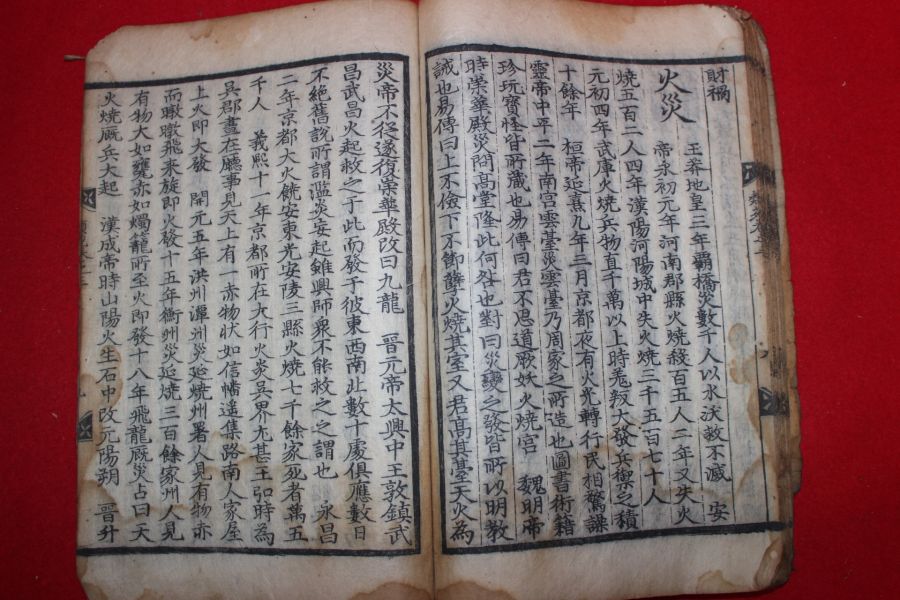 財禍
火災
王莽地皇三年霸橋災數千人以水沃救不滅 安
帝永初元年河南郡縣火燒殺百五人二年又失火
燒五百二人四年漢陽河陽城中失火燒三千五百七十人
元初四年武庫火燒兵物直千萬以上時羗叛大發兵禦之積
十餘年 桓帝延熹九年三月京都夜有火光轉行民相驚譟
靈帝中平二年南宮雲臺災雲臺乃周家之所造也圖書術籍
珍玩寶怪皆所藏也易傳曰君不思道厥妖火燒宮 魏明帝
時崇華殿災問高堂隆此何咎也對曰災變之發皆所以明教
誡也易傳曰上不儉下不節孽火燒其室又君高其臺天火為
災帝不從遂復崇華殿改曰九龍 晉元帝太興中王敦鎮武
昌武昌火起救之于此而發于彼東西南北數十處俱應數日
不絶舊說所謂濫炎妄起雖興師衆不能救之之謂也 永昌
二年京都大火饒安東光安陵三縣火燒七千餘家死者萬五
千人 義熙十一年京都所在大行火災吳界尤甚王弘時為
吳郡晝在廳事見天上有一赤物狀如信幡遥集路南人家屋
上火即大發 開元五年洪州潭州災延燒州署人見有物赤
而暾暾飛来旋即火發十五年衡州災延燒三百餘家州人見
有物大如甕赤如燭籠所至火即發十八年飛龍厩災占曰天
火燒厩兵大起 漢成帝時山陽火生石中改元陽朔 晉升